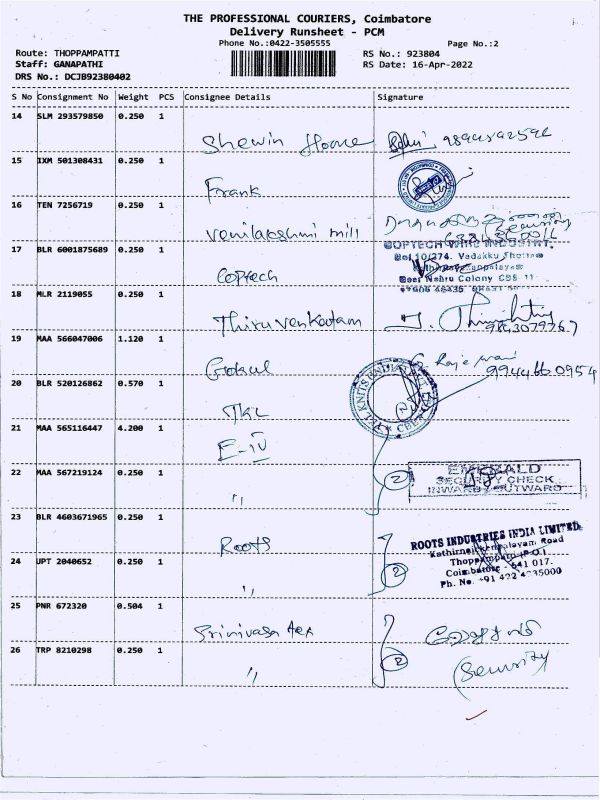 THE PROFESSIONAL COURIERS, Coimbatore
Delivery Runsheet - PCM
Phone No.:0422-3505555
Page No.:2
Route: THOPPAMPATTI
RS No.: 923804
Staff: GANAPATHI
RS Date: 16-Apr-2022
DRS No.: DCJB92380402
S No Consignment No Weight PCS Consignee Details Signature
14 SLM 293579850 0.250 1
Shewin Home
15 IXM 501308431 0.250 1
Frank
16 TEN 7256719 0.250 1
Venilakshmi mill
17 BLR 6001875689 0.250 1
Coptech
COPTECH WIRE INDUSTRY,
Vadakku
Nehru Colony
18 MLR 2119055 0.250 1
Thiru Venkatam
9843079767
19 MAA 566047006 1.120 1
Gokul
9944660954
20 BLR 520126862 0.570 1
TKL
21 MAA 565116447 4.200 1
E-IV
22 MAA 567219124 0.250 1
"
2
EMERALD
SECURITY CHECK
INWARD / OUTWARD
23 BLR 4603671965 0.250 1
Roots
ROOTS INDUSTRIES INDIA LIMITED,
Road
24 UPT 2040652 0.250 1
"
2
Coimbatore - 641 017.
Ph. No. +91 422 4235000
25 PNR 672320 0.504 1
Srinivasa tex
26 TRP 8210298 0.250 1
"
2
(Security